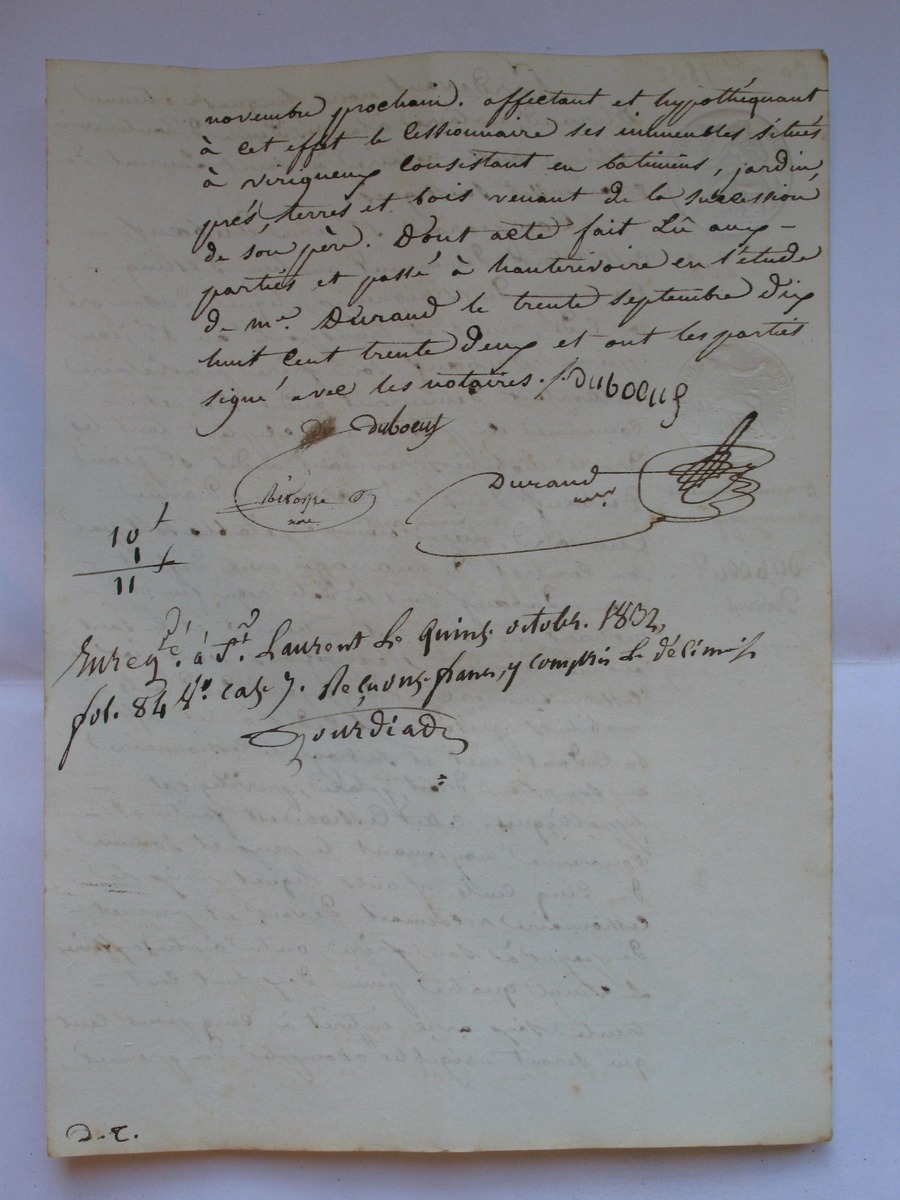 novembre prochain. affectant et hypothéquant
à cet effet le Cessionnaire ses immeubles situés
à virigneux Consistant en batimens, jardin,
prés, terres et bois venant de la succession
de son père. Dont acte fait Lû aux-
parties et passé à hauterivoire en l'étude
de me. Durand le trente septembre dix
huit cent trente deux et ont les parties
signé avec les notaires. /. Duboeuf
Duboeuf
Durand
nore
10 f
1 f
11
Enregté. à St. Laurent Le quinze octobre. 1832,
fol. 84 Vo. case 7. Reçu onze francs, y compris Le décime /.
Gourdiad
D. T.